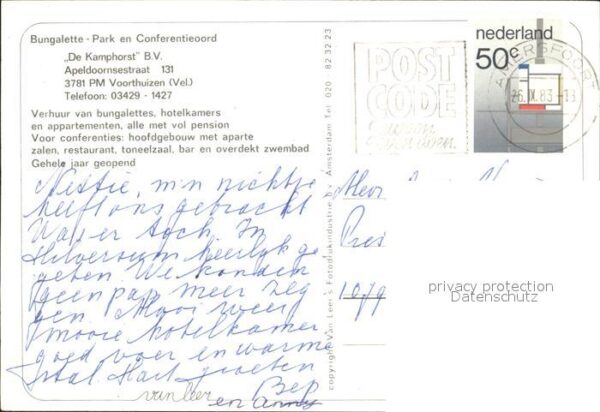 Bungalette - Park en Conferentieoord
„De Kamphorst" B.V.
Apeldoornsestraat 131
3781 PM Voorthuizen (Vel.)
Telefoon: 03429 - 1427
Verhuur van bungalettes, hotelkamers
en appartementen, alle met vol pension
Voor conferenties: hoofdgebouw met aparte
zalen, restaurant, toneelzaal, bar en overdekt zwembad
Gehele jaar geopend
Nettie, m'n nichtje
heeft ons gebracht
Was er toch. In
Hilversum heerlijk ge
geten We konden
geen pap meer zeg
gen. Mooi weer
mooie hotelkamer
goed voer en warme
stal. Hart. groeten
Bep
van Leer en Anny
copyright Van Leer's Fotodrukindustrie b.v. Amsterdam Tel. 020 82 32 23
POST
CODE
nederland
50c
AMERSFOORT
26.IX.83-18
Mevr
1079
privacy protection
Datenschutz